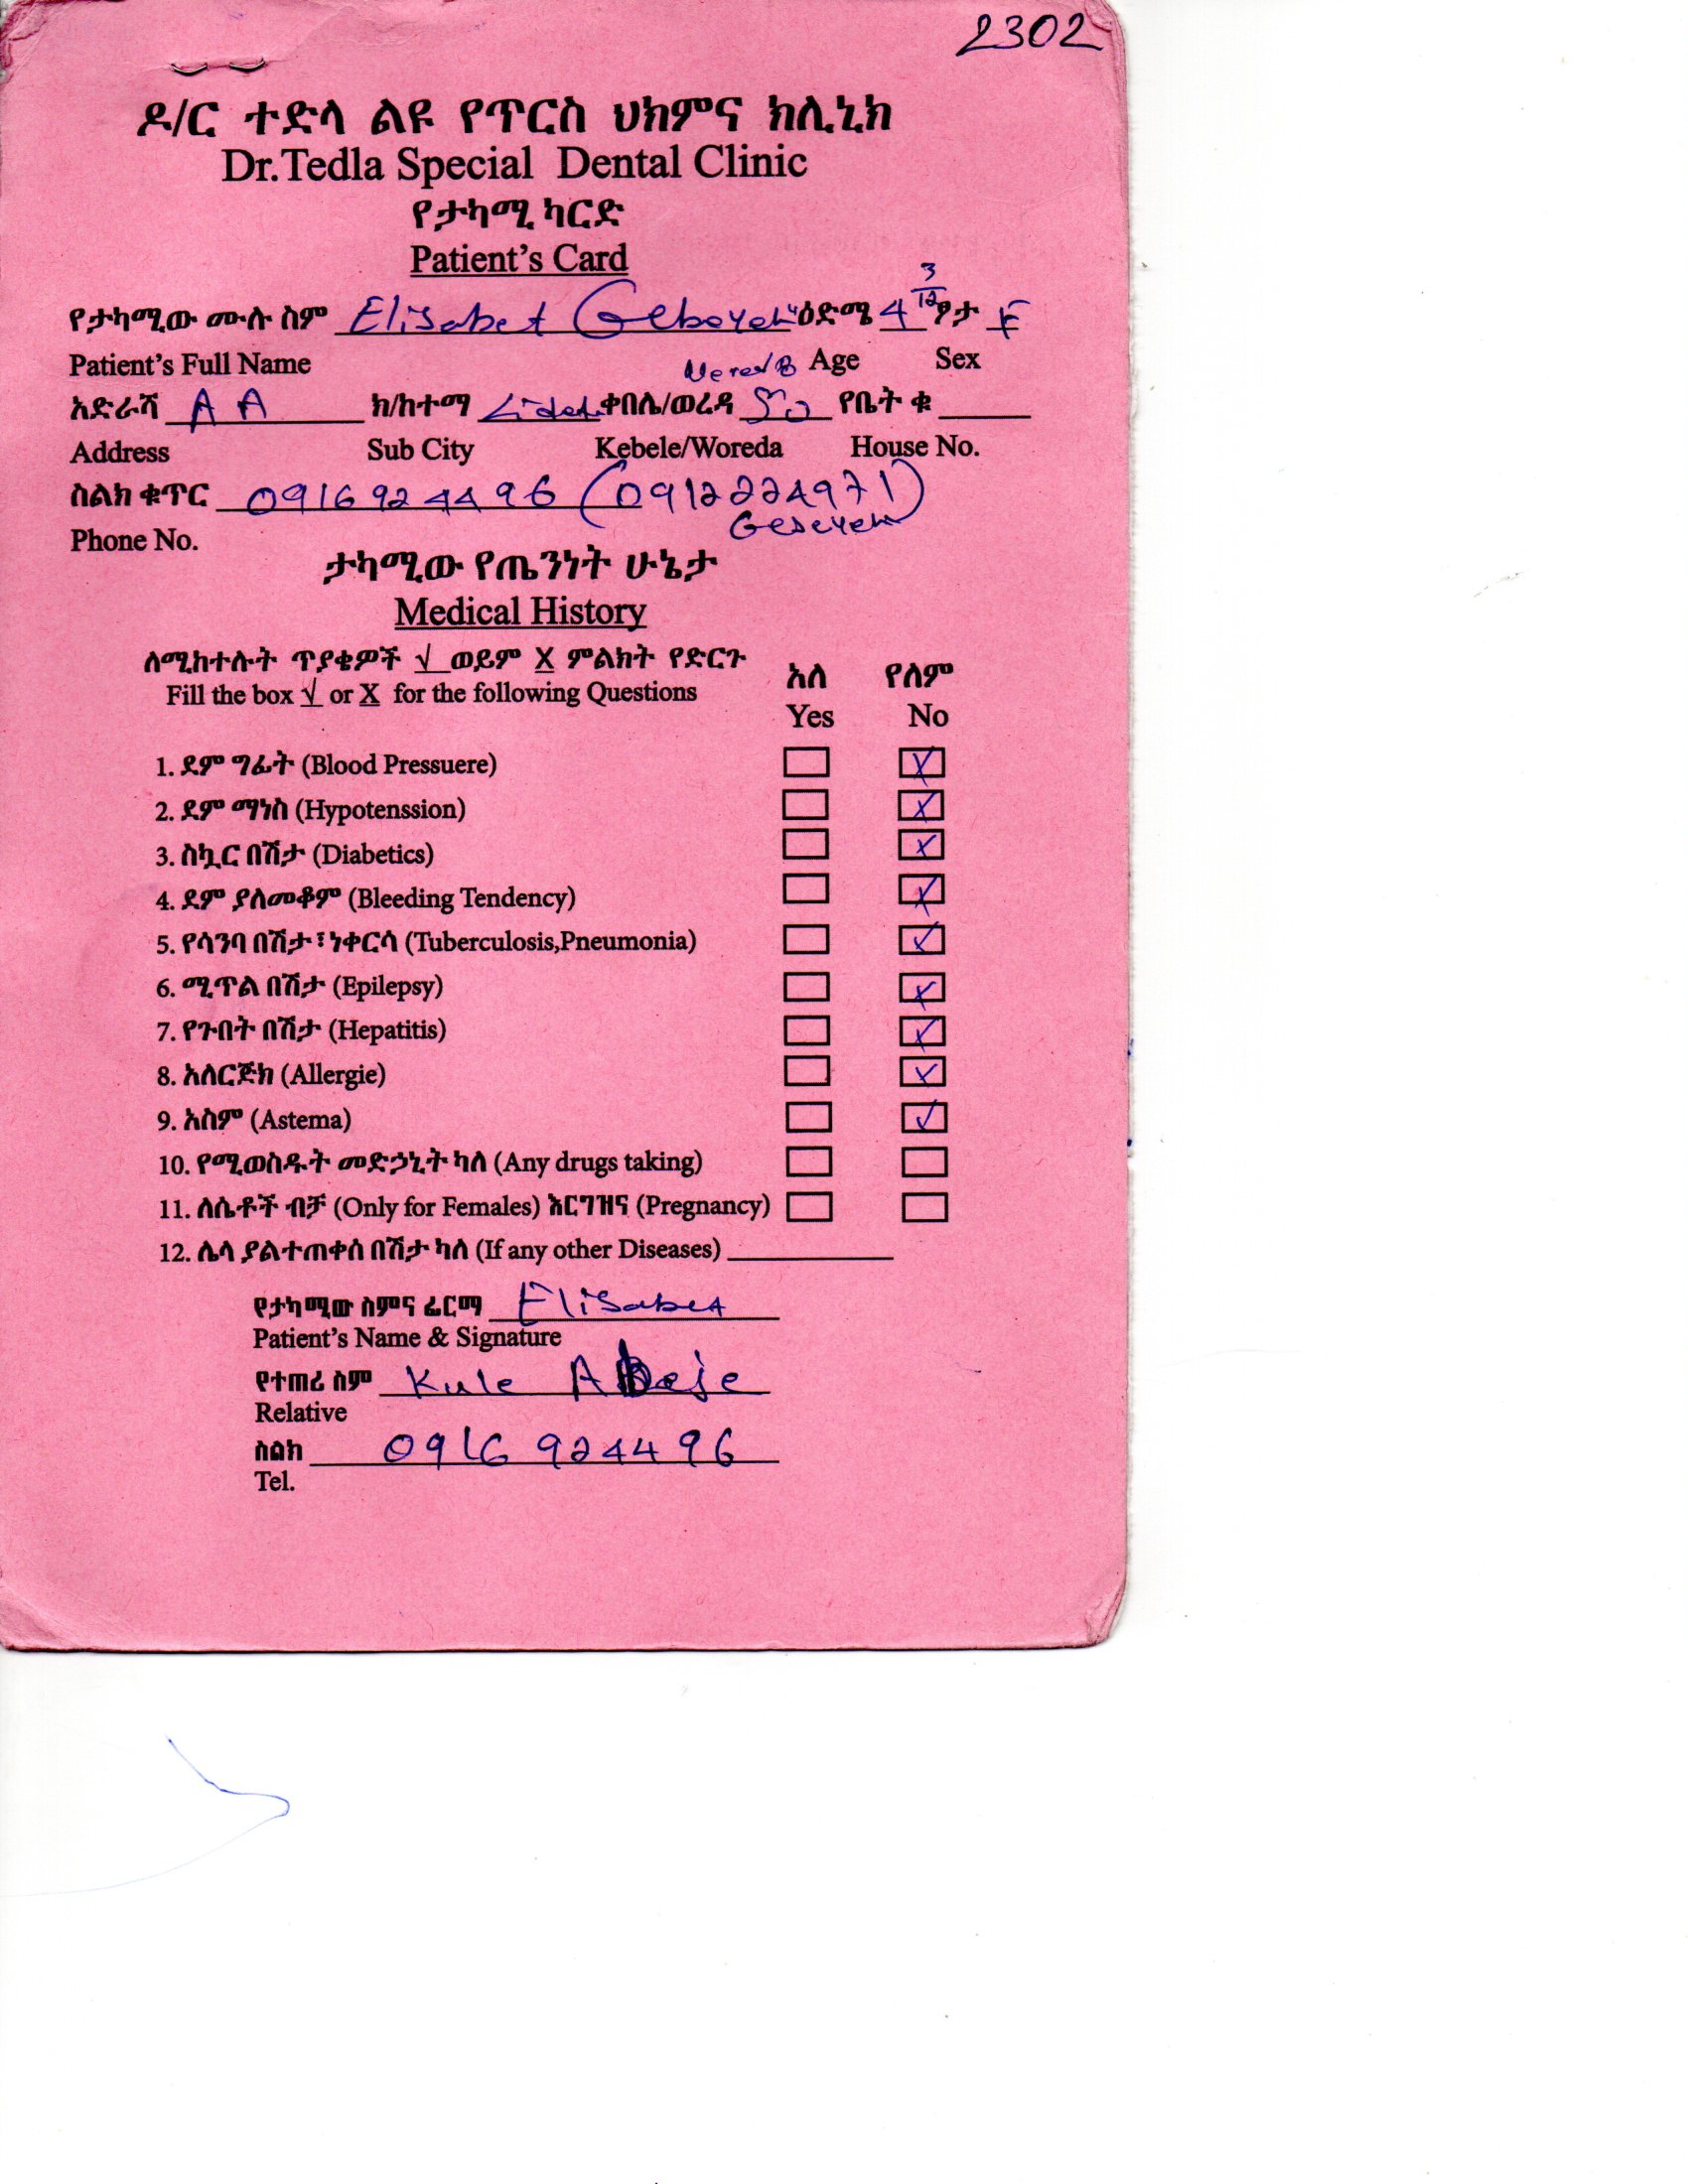 2302
ዶ/ር ተድላ ልዩ የጥርስ ህክምና ክሊኒክ
Dr.Tedla Special Dental Clinic
የታካሚ ካርድ
Patient's Card
3
የታካሚው ሙሉ ስም Elisabet Geboyehu ዕድሜ 4 12 ፆታ F
Patient's Full Name Age Sex
አድራሻ AA ክ/ከተማ ቀበሌ/ወረዳ የቤት ቁ
Address Sub City Kebele/Woreda House No.
ስልክ ቁጥር 0916 92 44 96 (0912224971)
Phone No.
ታካሚው የጤንነት ሁኔታ
Medical History
ለሚከተሉት ጥያቄዎች √ ወይም X ምልክት የድርጉ አለ የለም
Fill the box √ or X for the following Questions Yes No
1. ደም ግፊት (Blood Pressuere)
2. ደም ማነስ (Hypotenssion)
3. ስኳር በሽታ (Diabetics)
4. ደም ያለመቆም (Bleeding Tendency)
5. የሳንባ በሽታ፣ ነቀርሳ (Tuberculosis,Pneumonia)
6. ሚጥል በሽታ (Epilepsy)
7. የጉበት በሽታ (Hepatitis)
8. አለርጅክ (Allergie)
9. አስም (Astema)
10. የሚወስዱት መድኃኒት ካለ (Any drugs taking)
11. ለሴቶች ብቻ (Only for Females) እርግዝና (Pregnancy)
12. ሌላ ያልተጠቀሰ በሽታ ካለ (If any other Diseases)
የታካሚው ስምና ፊርማ Elisabet
Patient's Name & Signature
የተጠሪ ስም Kule Abeje
Relative
ስልክ 0916 924496
Tel.